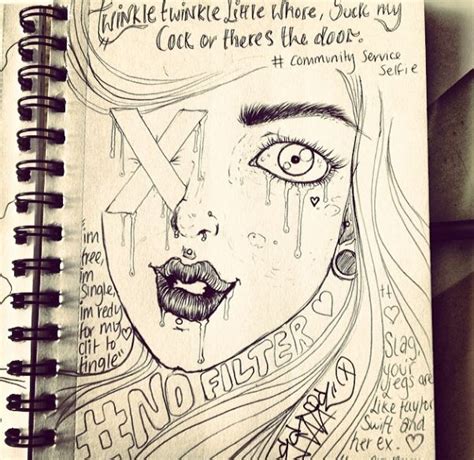 Twinkle twinkle little whore, Suck my
Cock or theres the door.
# Community Service
Selfie
"im
free,
im
Single,
im redy
for my
clit to
tingle"
#NO FILTER ♡
Slag,
your
legs are
Like taylor
Swift and
her ex. ♡